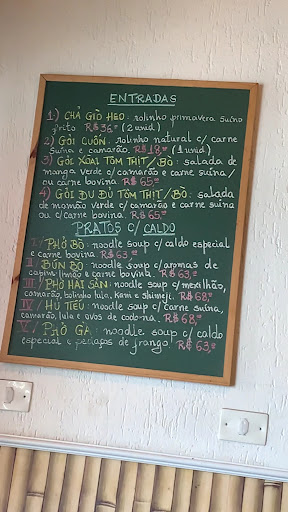 ENTRADAS
1) CHẢ GIÒ HEO: rolinho primavera suíno
frito R$36,00 (2 unid.)
2) GỎI CUỐN: rolinho natural c/ carne
suína e camarão. R$18,00 (1 unid.)
3) GỎI XOÀI TÔM THỊT/BÒ: salada de
manga verde c/ camarão e carne suína/
ou carne bovina. R$65,00
4) GỎI ĐU ĐỦ TÔM THỊT/BÒ: salada
de mamão verde c/ camarão e carne suína
ou c/ carne bovina. R$65,00
PRATOS C/ CALDO
I/ PHỞ BÒ: noodle soup c/ caldo especial
e carne bovina. R$63,00
II BÚN BÒ: noodle soup c/ aromas de
capim limão e carne bovina. R$63,00
III/ PHỞ HẢI SẢN: noodle soup c/ mexilhão,
camarão, bolinho lula, Kani e Shimeji. R$68,00
IV/ HỦ TIẾU: noodle soup c/ carne suína,
camarão, lula e ovos de codorna. R$68,00
V/ PHỞ GÀ: noodle soup c/ caldo
especial e pedaços de frango! R$63,00